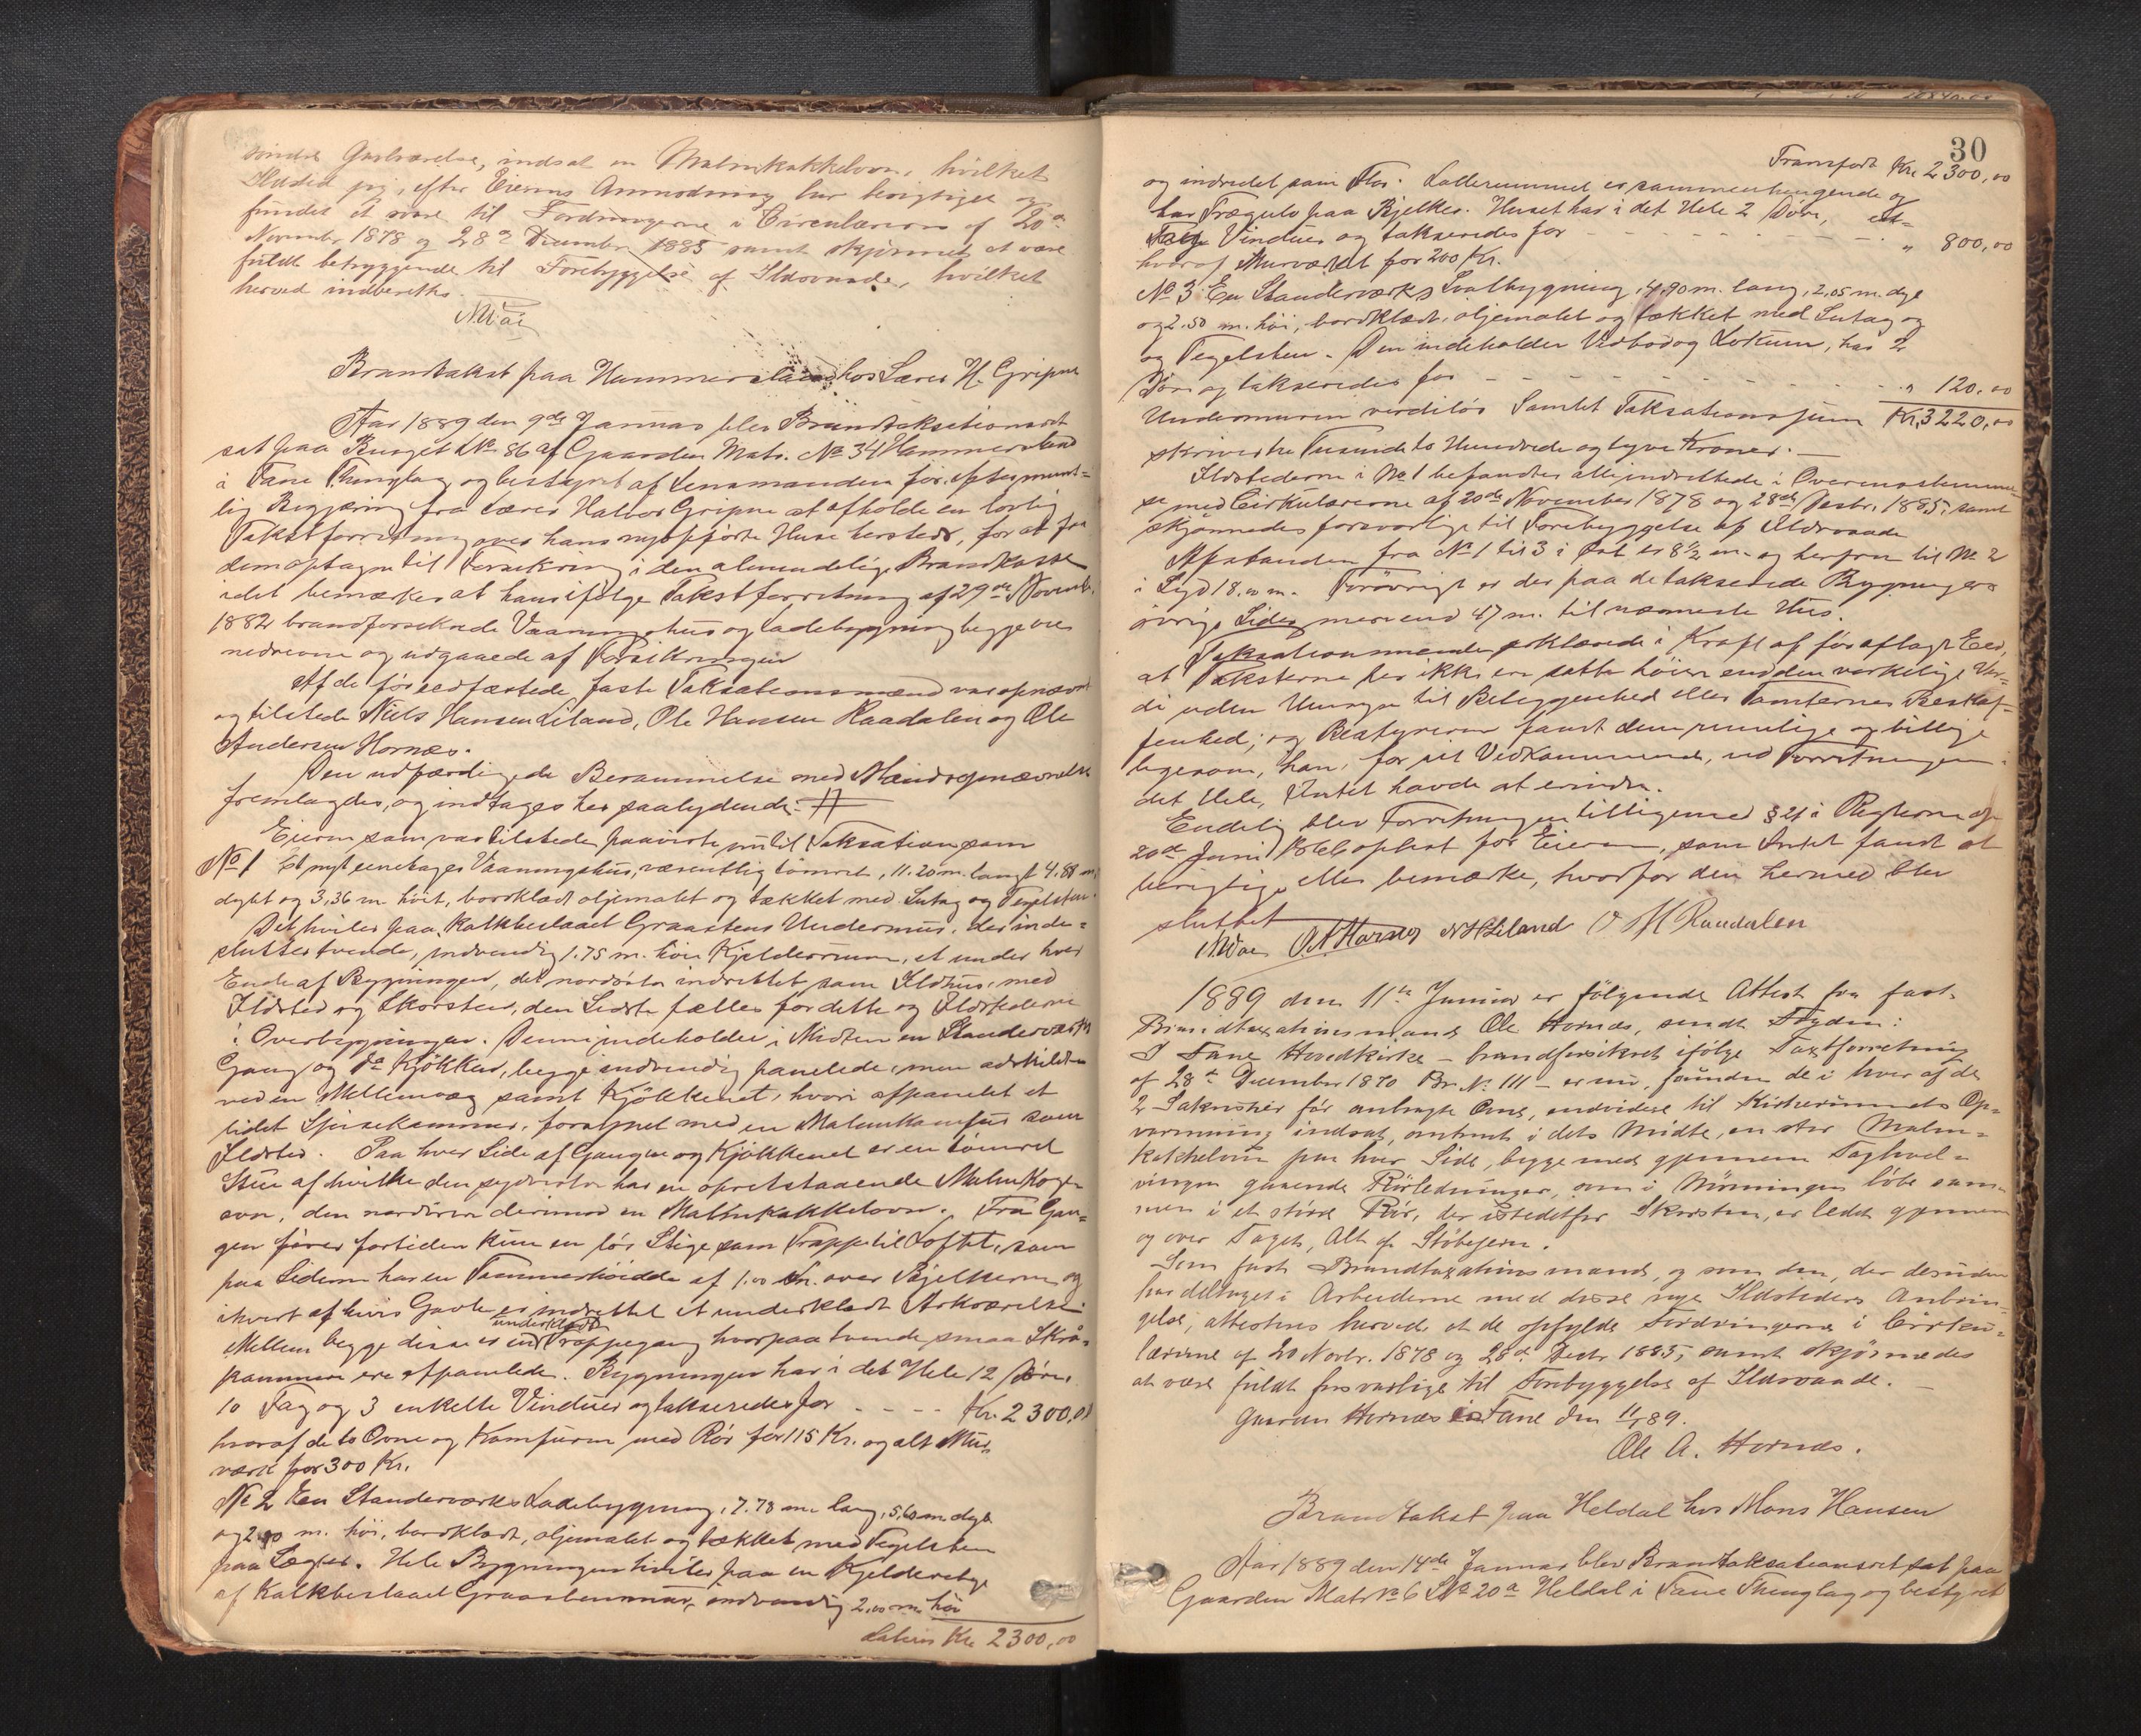 søndre Gasteværelse, indsat en Malmkakkelovn, hvilket
Ildsted jeg, efter Eierens Anmodning har besigtiget og
fundet at svare til Fordringerne i Circulærerne af 20de
Novembr 1878 og 28de December 1885 samt skjønnet at være
fuldt betryggende til Forebyggelse af Ildsvaade, hvilket
herved indberettes.
Brandtakst paa Hammersland hos Lærer H. Gripne
Aar 1889 den 9de Januar blev Brandtaksationsret
sat paa Bruget No 86 af Gaarden Matr. No 34 Hammersland
i Fane Thinglag og bestyret af Lensmanden for, efter mundt-
lig Begjæring fra Lærer Halvor Gripne at afholde en lovlig
Takstforretning over hans nyopførte Huse hersteds, for at faa
dem optagne til Forsikring i den almindelige Brandkasse
idet bemærkes at hans ifølge Takstforretning af 29de Novembr.
1882 brandforsikrede Vaaningshus og Ladebygning begge ere
nedrevne og udgaaede af Forsikringen
Af de før eedfæstede, faste Taksationsmænd var opnævnt
og tilstede Niels Hansen Liland, Ole Hansen Raadalen og Ole
Andersen Hornæs.
Den udfærdigede Berammelse med Mændsopnævnelse
fremlagdes, og indtages her saalydende: #
Eieren som var tilstede paaviste nu til Taksation som
No 1 Et nyt eenetages Vaaningshus, væsentlig tømret, 11.20 m. langt 4.88 m,
dybt og 3,36 m høit, bordklædt oljemalet og tækket med Sutag og Tegelsten.
Det hviler paa kalkbeslaaet Graastens Undermur, der inde-
slutter tvende, indvendig 1.75 m. høie Kjelderrum, et under hver
Ende af Bygningen, det nordøstre indrettet som Ildhus, med
Ildsted og Skorsten, den Sidste fælles for dette og Ildstederne
i Overbygningen. Denne indeholder i Midten en Standerværks
Gang og do Kjøkken, begge indvendig panelede, men adskildte
ved en Mellemvæg samt Kjøkkenet, hvori afpanelet et
lidet Spisekammer, forsynet med en Malmkomfur som
Ildsted. Paa hver Side af Gangen og Kjøkkenet er en tømret
Stue af hvilke den sydvestre har en opretstaaende Malm Koge-
ovn, den nordøstre derimod en Malmkakkelovn. Fra Gan-
gen fører fortiden kun en løs Stige som Trappe til Loftet, som
paa Siderne har en Tømmerhøidde af 1.00 m. over Bjelkerne og
i hvert af hvis Gavle er indrettet et underklædt Arkværelse.
Mellem begge disse er en underklædt Trappegang hvorpaa tvende smaa Skraa-
kammere ere afpanelede. Bygningen har i det Hele 12 Døre,
10 Fag og 3 enkelte Vinduer og takseredes for - - - - Kr. 2300,00
hvoraf de to Ovne og Komfuren med Rør for 115 Kr. og alt Mur-
værk for 300 Kr.
No 2 Een Standerværks Ladebygning, 7.78 m. lang, 5,60 m. dyb
og 2.90 m. høi, bordklædt, oljemalet og tækket med Tegelsten
paa Lægter. Hele Bygningen hviler paa en Kjelderetage
af Kalkbeslaaet Graastensmur, indvendig 2,00 m. høi
Lateris Kr. 2300,00
30
Transport Kr. 2300,00
og indredet som Fløs. Laderummet er sammenhængende og
har Trægulv paa Bjelker. Huset har i det Hele 2 Døre, et
Fag Vinduer og takseredes for - - - - - - - - " 800,00
hvoraf Murværket for 200 Kr.
No 3 En Standerværks Svalbygning, 4.90 m. lang, 2,05 m. dyb
og 2.50 m. høi, bordklædt, oljemalet og tækket med Sutag og
og Tegelsten. Den indeholder Vedbod og Lokum, har 2
Døre og takseredes for - - - - - - - - - - " 120.00
Undermuren verdiløs Samlet Taksationssum Kr. 3220,00
skriver tre Tusinde to Hundrede og tyve Kroner. —
Ildstederne i No 1 befandtes alle indrettede i Overensstemmel-
se med Cirkulærerne af 20de November 1878 og 28de Decbr. 1885, samt
skjønnedes forsvarlige til Forebyggelse af Ildsvaade
Afstanden fra No 1 til 3 i Øst er 8 1/2 m. og herfra til No 2
i Syd 18.00 m. Forøvrigt er der paa de takserede Bygningers
øvrige Sider mere end 47 m. til næmeste Hus.
Taksationsmændene erklærede i Kraft af før aflagt Eed,
at Taksterne her ikke ere satte høiere end den virkelige Vær-
di uden Hensyn til Beliggenhed eller Tomternes Beskaf-
fenhed; og Bestyreren fandt dem rimelige og billige
ligesom, han, for sit Vedkommende, ved Forretningen i
det Hele, Intet havde at erindre.
Endelig blev Forretningen tilligemed § 21 i Reglerne af
20de Juni 1866 oplæst for Eieren, som Intet fandt at
berigtige eller bemærke, hvorfor den hermed blev
sluttet
O. A. Hornæs N H Liland O H Raadalen
1889 den 11te Januar er følgende Attest fra fast
Brandtaxationsmand Ole Hornæs, sendt Fogden:
I Fane Hovedkirke – brandforsikret ifølge Taxtforretning
af 28de December 1870 Br. No. 111 – er nu, foruden de i hver af de
2 Sakristier før anbragte Ovne, endvidere til Kirkerummets Op-
varmning indsat, omtrent i dets Midte, en stor Malm-
kakkelovn paa hver Side, begge med gjennem Taghvel-
vingen gaaende Rørledninger, som i Mønningen løbe sam-
men i et større Rør, der istedetfor Skorsten, er ledet gjennem
og over Taget, Alt af Støbejern.
Som fast Brandtaxationsmand, og som den, der desuden
har deltaget i Arbeiderne med disse nye Ildsteders Anbrin-
gelse, attesteres herved at de opfylde Fordringerne i Cirku-
lærerne af 20 Novbr. 1878 og 28de Decbr 1885, samt skjønnedes
at være fuldt forsvarlige til Forebyggelse af Ildsvaade. —
Gaarden Hornæs i Fane den 11/1 89.
Ole A. Hornæs.
Brandtakst paa Heldal hos Mons Hansen
Aar 1889 den 14de Januar blev Brandtaksationsret sat paa
Gaarden Matr No 6 L No 20a Heldal i Fane Thinglag og bestyret